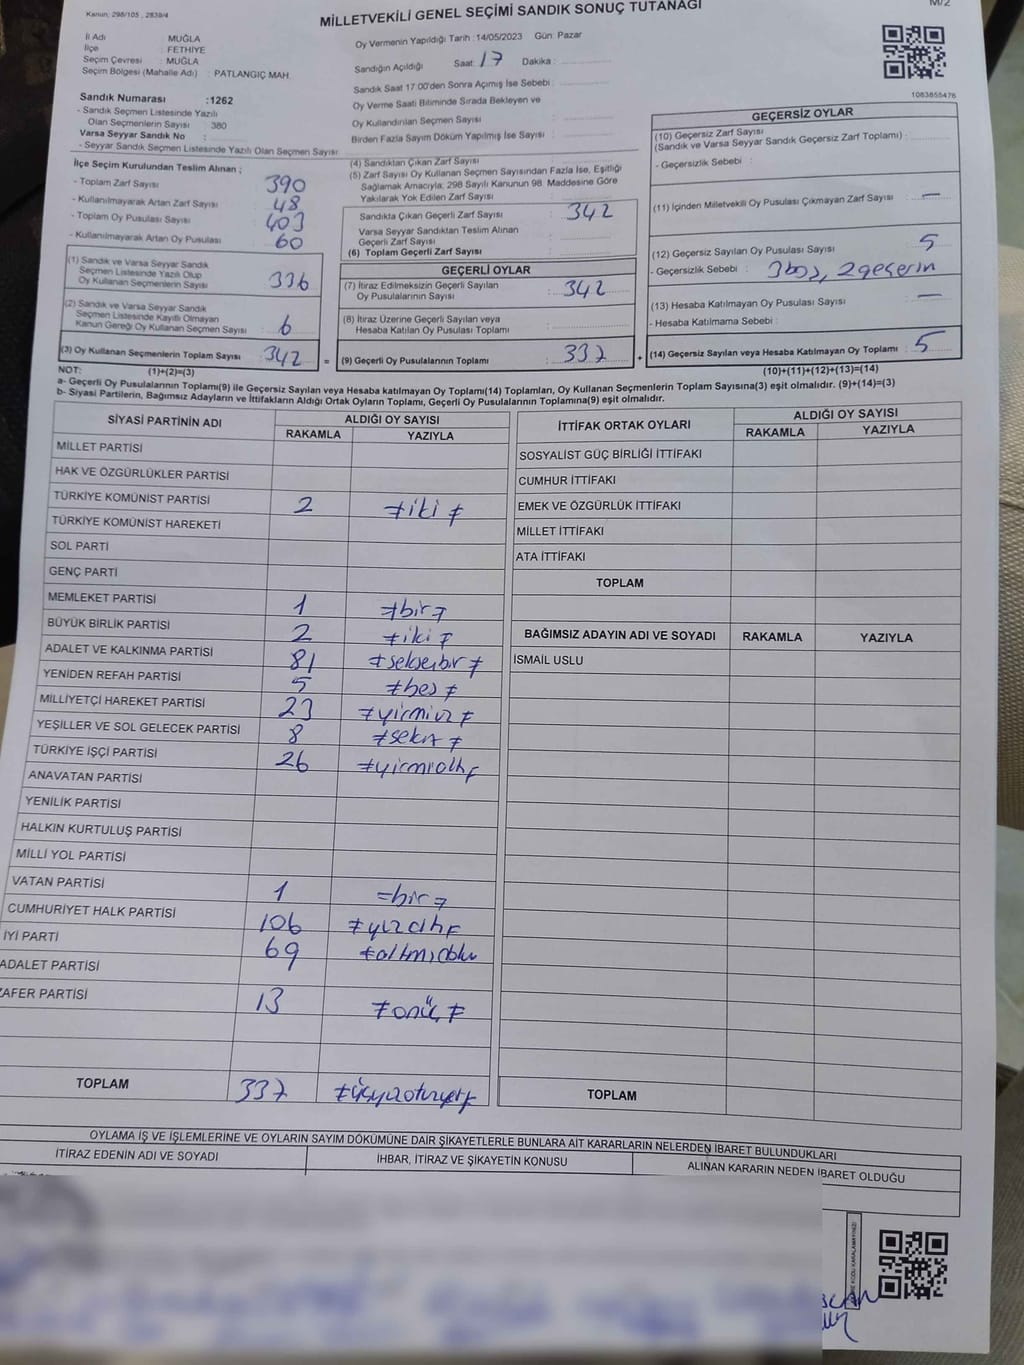 Kanun, 298/105 , 2839/4
M/2
MİLLETVEKİLİ GENEL SEÇİMİ SANDIK SONUÇ TUTANAĞI
İl Adı : MUĞLA
İlçe : FETHİYE
Seçim Çevresi : MUĞLA
Seçim Bölgesi (Mahalle Adı) : PATLANGIÇ MAH.
Sandık Numarası :1262
- Sandık Seçmen Listesinde Yazılı
Olan Seçmenlerin Sayısı : 380
Varsa Seyyar Sandık No :
- Seyyar Sandık Seçmen Listesinde Yazılı Olan Seçmen Sayısı :
İlçe Seçim Kurulundan Teslim Alınan ;
- Toplam Zarf Sayısı : 390
- Kullanılmayarak Artan Zarf Sayısı : 48
- Toplam Oy Pusulası Sayısı : 403
- Kullanılmayarak Artan Oy Pusulası : 60
(1) Sandık ve Varsa Seyyar Sandık
Seçmen Listesinde Yazılı Olup
Oy Kullanan Seçmenlerin Sayısı : 336
(2) Sandık ve Varsa Seyyar Sandık
Seçmen Listesinde Kayıtlı Olmayan
Kanun Gereği Oy Kullanan Seçmen Sayısı : 6
(3) Oy Kullanan Seçmenlerin Toplam Sayısı : 342
Oy Vermenin Yapıldığı Tarih :14/05/2023 Gün: Pazar
Sandığın Açıldığı Saat: 17 Dakika :
Sandık Saat 17.00'den Sonra Açılmış İse Sebebi :
Oy Verme Saati Bitiminde Sırada Bekleyen ve
Oy Kullandırılan Seçmen Sayısı :
Birden Fazla Sayım Döküm Yapılmış İse Sayısı :
(4) Sandıktan Çıkan Zarf Sayısı :
(5) Zarf Sayısı Oy Kullanan Seçmen Sayısından Fazla İse, Eşitliği
Sağlamak Amacıyla; 298 Sayılı Kanunun 98. Maddesine Göre
Yakılarak Yok Edilen Zarf Sayısı :
Sandıkta Çıkan Geçerli Zarf Sayısı : 342
Varsa Seyyar Sandıktan Teslim Alınan
Geçerli Zarf Sayısı :
(6) Toplam Geçerli Zarf Sayısı :
GEÇERLİ OYLAR
(7) İtiraz Edilmeksizin Geçerli Sayılan
Oy Pusulalarının Sayısı : 342
(8) İtiraz Üzerine Geçerli Sayılan veya
Hesaba Katılan Oy Pusulası Toplamı :
= (9) Geçerli Oy Pusulalarının Toplamı : 337 +
1083855476
GEÇERSİZ OYLAR
(10) Geçersiz Zarf Sayısı
(Sandık ve Varsa Seyyar Sandık Geçersiz Zarf Toplamı) :
- Geçersizlik Sebebi :
(11) İçinden Milletvekili Oy Pusulası Çıkmayan Zarf Sayısı : —
(12) Geçersiz Sayılan Oy Pusulası Sayısı : 5
- Geçersizlik Sebebi : 3 boş, 2 geçersiz
(13) Hesaba Katılmayan Oy Pusulası Sayısı : —
- Hesaba Katılmama Sebebi :
(14) Geçersiz Sayılan veya Hesaba Katılmayan Oy Toplamı : 5
NOT: (1)+(2)=(3) (10)+(11)+(12)+(13)=(14)
a- Geçerli Oy Pusulalarının Toplamı(9) ile Geçersiz Sayılan veya Hesaba katılmayan Oy Toplamı(14) Toplamları, Oy Kullanan Seçmenlerin Toplam Sayısına(3) eşit olmalıdır. (9)+(14)=(3)
b- Siyasi Partilerin, Bağımsız Adayların ve İttifakların Aldığı Ortak Oyların Toplamı, Geçerli Oy Pusulalarının Toplamına(9) eşit olmalıdır.
SİYASİ PARTİNİN ADI ALDIĞI OY SAYISI
RAKAMLA YAZIYLA
MİLLET PARTİSİ
HAK VE ÖZGÜRLÜKLER PARTİSİ
TÜRKİYE KOMÜNİST PARTİSİ 2 ≠iki≠
TÜRKİYE KOMÜNİST HAREKETİ
SOL PARTİ
GENÇ PARTİ
MEMLEKET PARTİSİ 1 ≠bir≠
BÜYÜK BİRLİK PARTİSİ 2 ≠iki≠
ADALET VE KALKINMA PARTİSİ 81 ≠seksenbir≠
YENİDEN REFAH PARTİSİ 5 ≠beş≠
MİLLİYETÇİ HAREKET PARTİSİ 23 ≠yirmiüç≠
YEŞİLLER VE SOL GELECEK PARTİSİ 8 ≠sekiz≠
TÜRKİYE İŞÇİ PARTİSİ 26 ≠yirmialtı≠
ANAVATAN PARTİSİ
YENİLİK PARTİSİ
HALKIN KURTULUŞ PARTİSİ
MİLLİ YOL PARTİSİ
VATAN PARTİSİ 1 =bir≠
CUMHURİYET HALK PARTİSİ 106 ≠yüzaltı≠
İYİ PARTİ 69 ≠altmışdokuz
ADALET PARTİSİ
ZAFER PARTİSİ 13 ≠onüç≠
TOPLAM 337 ≠üçyüzotuzyedi≠
İTTİFAK ORTAK OYLARI ALDIĞI OY SAYISI
RAKAMLA YAZIYLA
SOSYALİST GÜÇ BİRLİĞİ İTTİFAKI
CUMHUR İTTİFAKI
EMEK VE ÖZGÜRLÜK İTTİFAKI
MİLLET İTTİFAKI
ATA İTTİFAKI
TOPLAM
BAĞIMSIZ ADAYIN ADI VE SOYADI RAKAMLA YAZIYLA
İSMAİL USLU
TOPLAM
OYLAMA İŞ VE İŞLEMLERİNE VE OYLARIN SAYIM DÖKÜMÜNE DAİR ŞİKAYETLERLE BUNLARA AİT KARARLARIN NELERDEN İBARET BULUNDUKLARI
İTİRAZ EDENİN ADI VE SOYADI İHBAR, İTİRAZ VE ŞİKAYETİN KONUSU ALINAN KARARIN NEDEN İBARET OLDUĞU